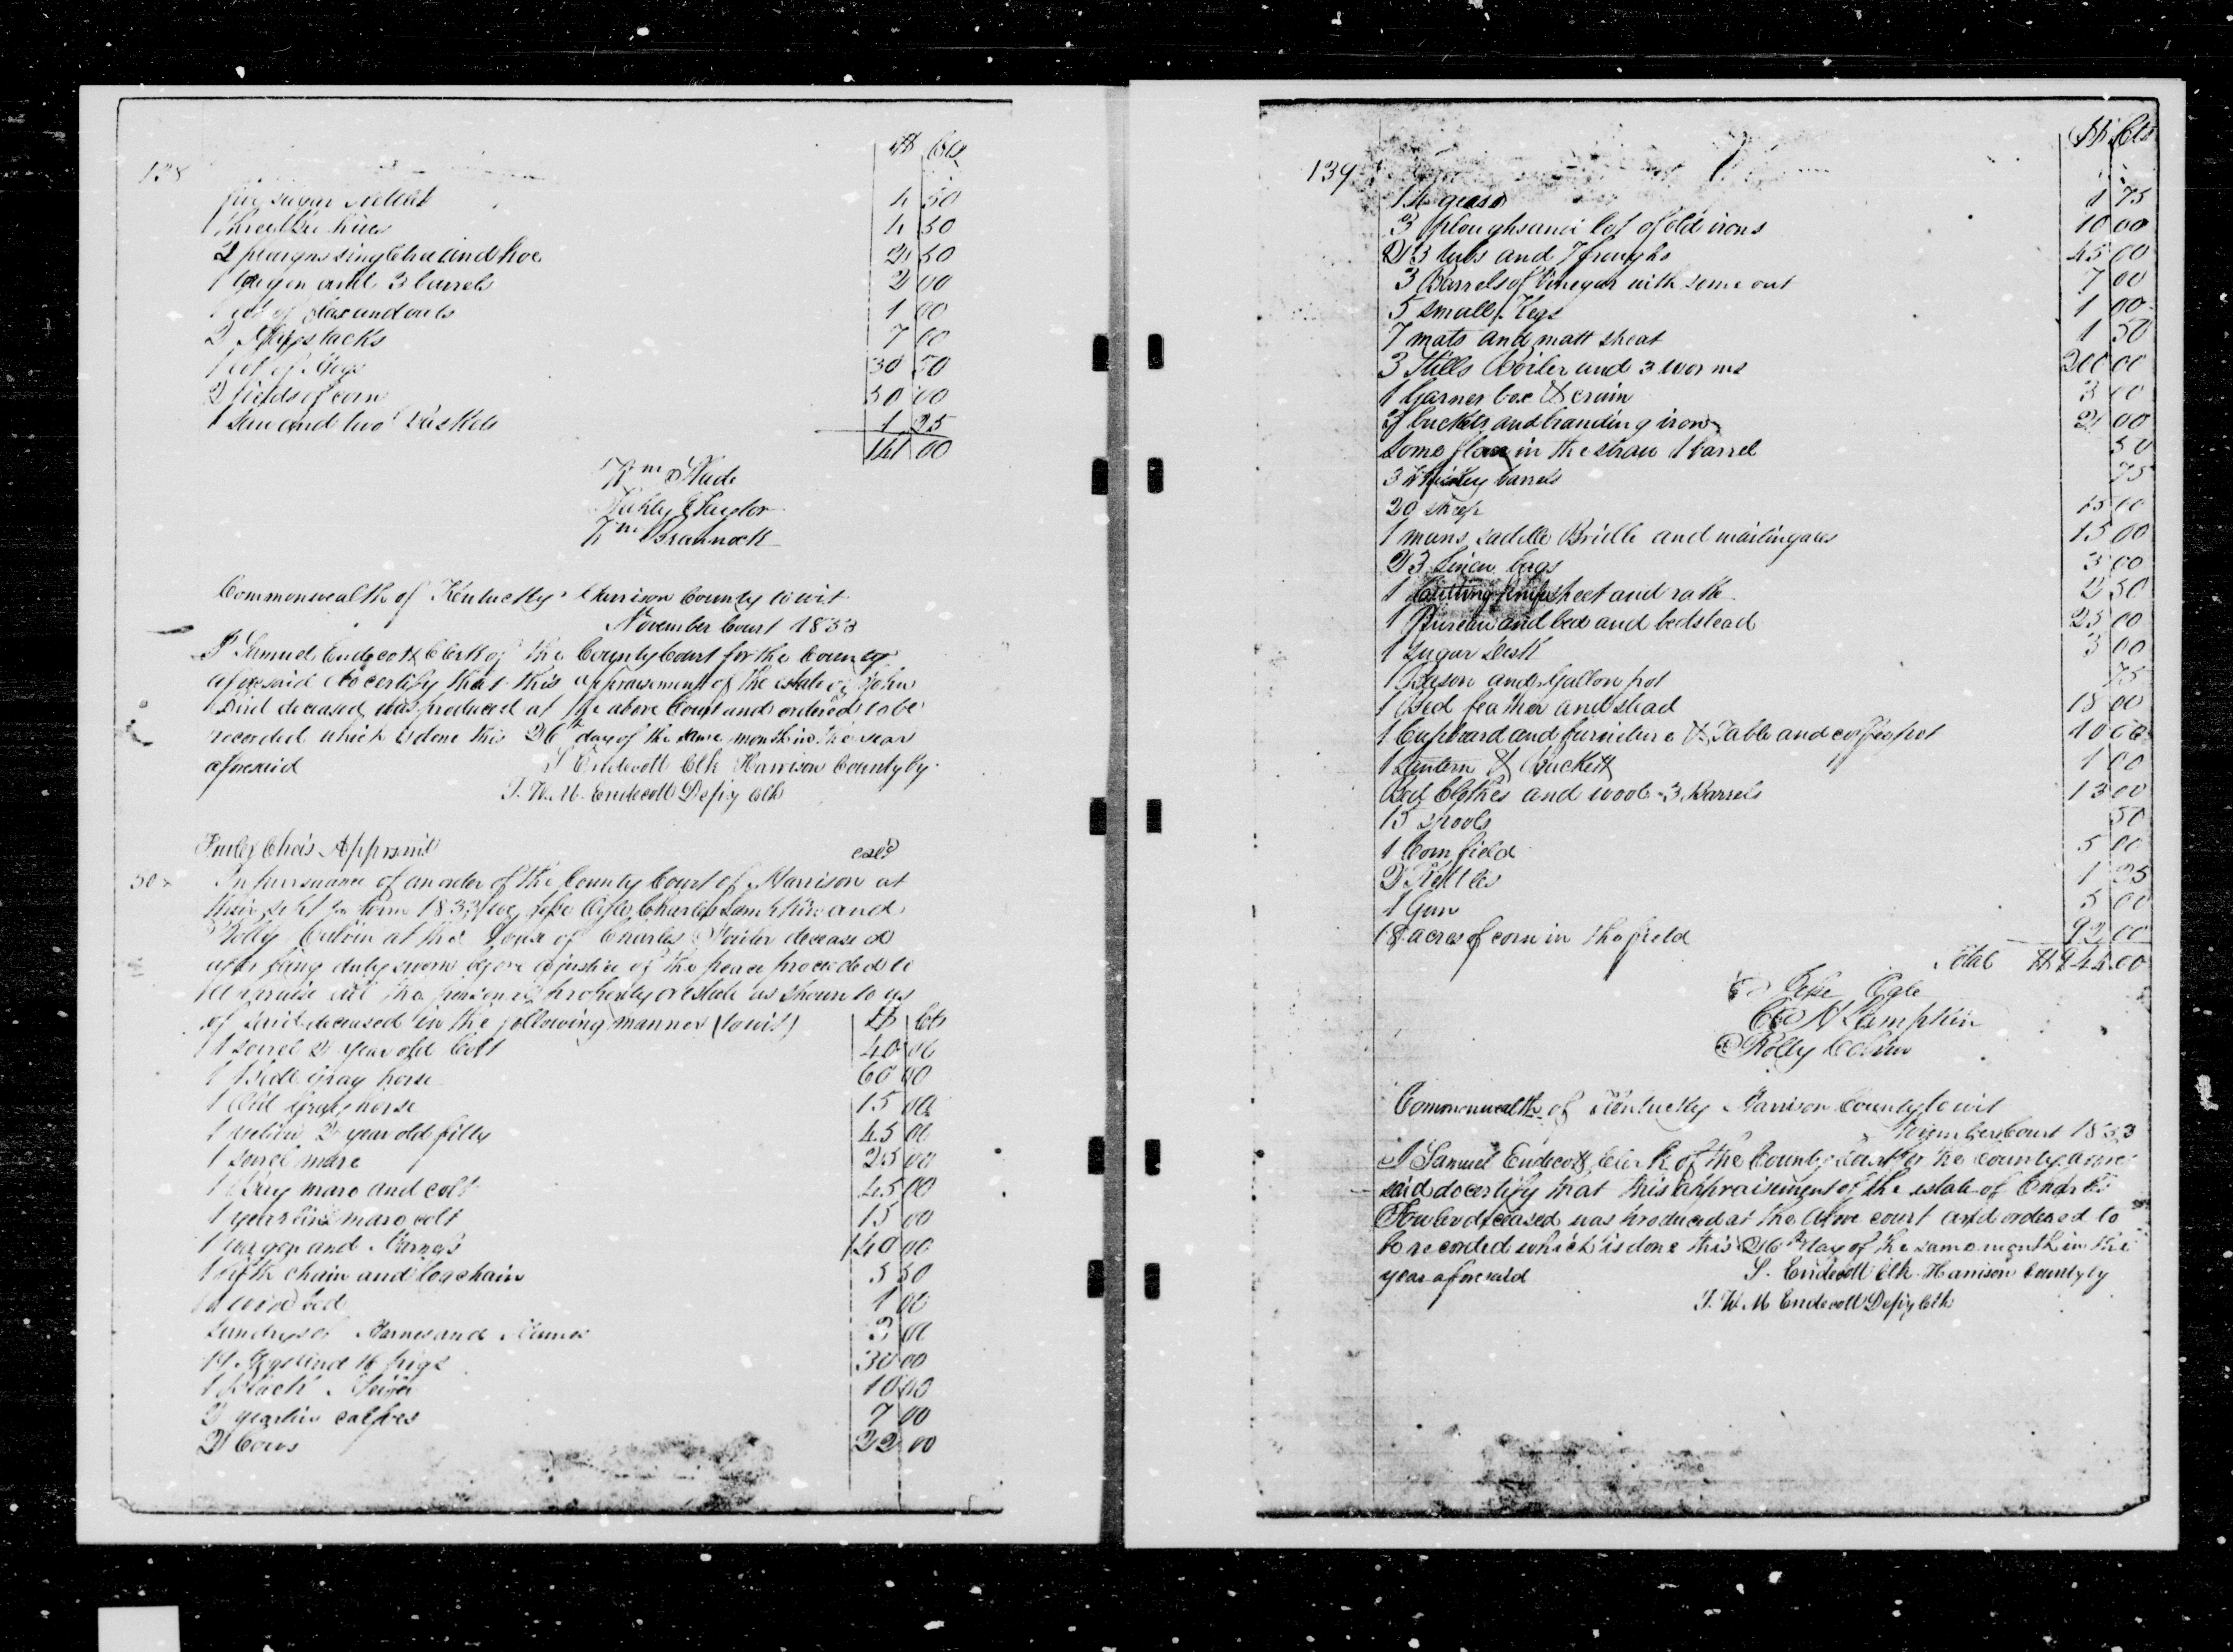 138
$ Cts
five sugar kettles 4 50
1 4 50
2 ploughs singletree and hoe 2 50
1 wagon and 3 barrels 2 00
1 lot of flax and oats 1 00
2 stacks 7 00
1 lot of Hogs 30 50
2 fields of corn 50 00
1 and two baskets 1 25
141 00
Wm Slade
Taylor
Wm Brannock
Commonwealth of Kentucky Harrison County towit
November Court 1833
I Samuel Endecott Clerk of the County Court for the County
aforesaid do certify that this appraisement of the estate of John
deceased was produced at the above Court and ordered to be
recorded which is done this 26th day of the same month in the year
aforesaid S Endecott Clk Harrison County by
J. W. M. Endecott Depy Clk
Chas Apprsmt
In pursuance of an order of the County Court of Harrison at
their term 1833 we Ogle Charles Lampkin and
Rolly Colvin at the house of Charles Fowler deceased
after being duly sworn before a justice of the peace proceeded to
appraise all the personal property or estate as shown to us
of said deceased in the following manner (towit) $ Cts
1 sorrel 2 year old Colt 40 00
1 gray horse 60 00
1 Old Gray horse 15 00
1 2 year old filly 45 00
1 sorrel mare 25 00
1 Bay mare and colt 45 00
1 yearling mare colt 15 00
1 wagon and Harness 140 00
1 fifth chain and log chain 5 50
bed 1 00
Sundry of Harness and Hames 3 00
14 Hogs and 16 pigs 30 00
1 black Heifer 10 00
2 yearlin calfves 7 00
2 Cows 22 00
139
$ Cts
14 geese 1 75
3 ploughs and lot of old irons 10 00
23 tubs and 7 troughs 45 00
3 Barrels of Vinegar with some out 7 00
5 small Kegs 1 00
7 mats and matt sheat 1 50
3 Stills Boiler and 3 worms 200 00
1 Garner box & 3 00
buckets and branding irons 2 00
Some flax in the straw 1 barrel 50
3 Whiskey barrels 75
20 sheep 15 00
1 mans saddle Bridle and 15 00
23 Linen bags 3 00
1 Cutting knife sheet and rake 2 50
1 Bureau and bed and bedstead 25 00
1 Sugar Desk 3 00
1 Bason and Gallon pot 75
1 Bed feather and stead 18 00
1 Cupboard and furniture & Table and coffeepot 10 00
1 Lantern & Buckett 1 00
Bed Clothes and wool 3 Barrels 13 00
15 spools 50
1 Corn field 5 00
2 Kettles 1 25
1 Gun 5 00
18 acres of corn in the field 92 00
Total
Ogle
Lampkin
Rolly Colvin
Commonwealth of Kentucky Harrison County towit
November Court 1833
I Samuel Endecott Clerk of the County Court for the county afore
said do certify that this appraisement of the estate of Charles
Fowler deceased was produced at the above court and ordered to
be recorded which is done this 26th day of the same month in the
year aforesaid S. Endecott Clk Harrison County by
J. W. M Endecott Depy Clk